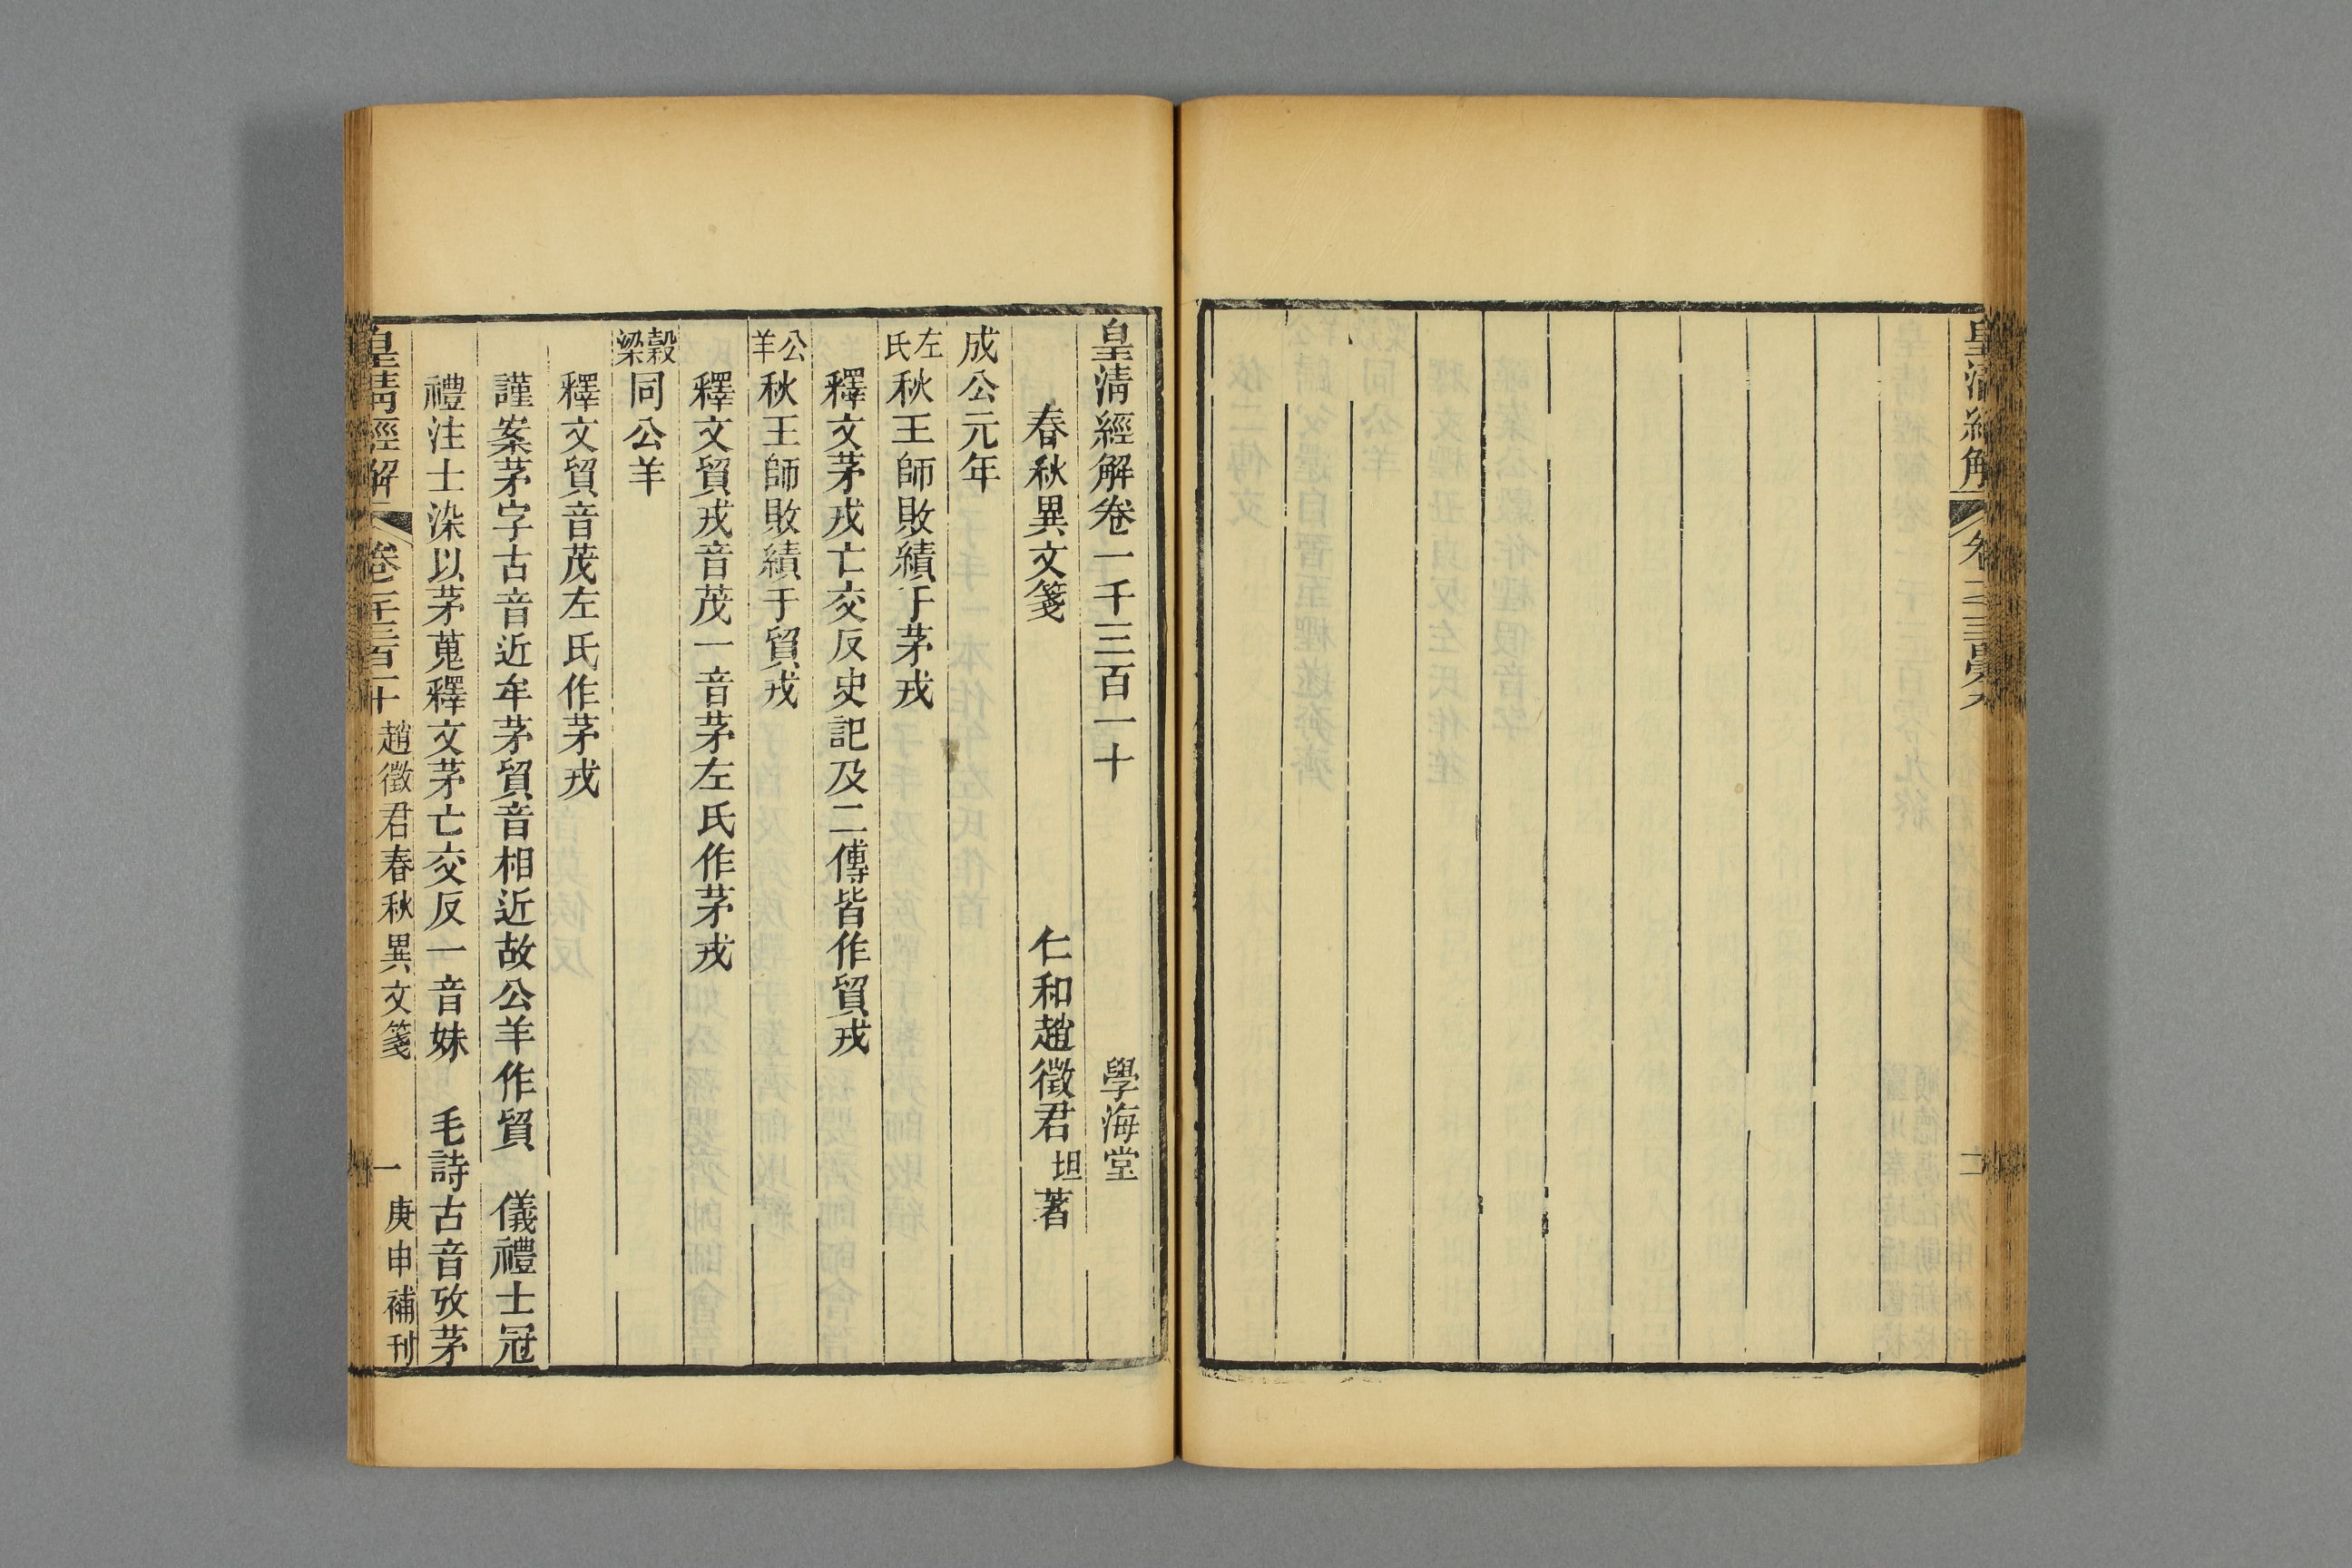 皇清經解
皇清經解卷一千三百一十
學海堂
春秋異文箋
仁和趙徵君坦著
成公元年
左氏秋王師敗績于茅戎
釋文茅戎亡交反史記及二傳皆作貿戎
公羊秋王師敗績于貿戎
釋文貿戎音茂一音茅左氏作茅戎
穀梁同公羊
釋文貿音茂左氏作茅戎
謹案茅字古音近牟茅貿音相近故公羊作貿　儀禮士冠
禮注士染以茅蒐釋文茅亡交反一音妹　毛詩古音攷茅
皇清經解
卷一千三百一十
趙徵君春秋異文箋
一
庚申補刊